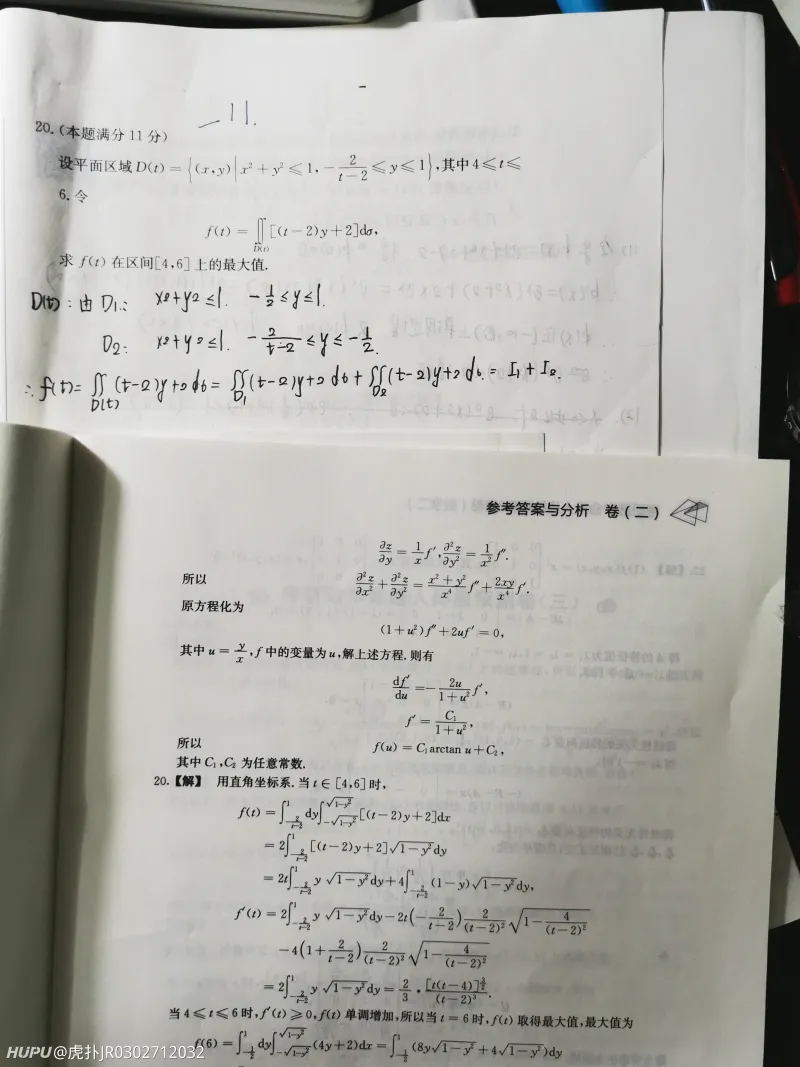 一 11.
20.(本题满分 11 分)
设平面区域 D(t) = {(x,y) | x² + y² ≤ 1, -2/(t-2) ≤ y ≤ 1}, 其中 4 ≤ t ≤
6. 令
f(t) = ∬_{D(t)} [(t-2)y+2]dσ,
求 f(t) 在区间[4,6]上的最大值.
D(t): 由 D1: x2+y2≤1. -1/2≤y≤1.
D2: x2+y2≤1. -2/(t-2)≤y≤-1/2.
∴ f(t)=∬_{D(t)} (t-2)y+2 dσ = ∬_{D1} (t-2)y+2 dσ + ∬_{D2} (t-2)y+2 dσ. = I1 + I2.
参考答案与分析 卷(二)
∂z/∂y = 1/x f′, ∂²z/∂y² = 1/x² f″.
所以 ∂²z/∂x² + ∂²z/∂y² = (x²+y²)/x⁴ f″ + 2xy/x⁴ f′.
原方程化为
(1+u²)f″+2uf′=0,
其中 u = y/x, f 中的变量为 u, 解上述方程. 则有
df′/du = -2u/(1+u²) f′,
f′ = C₁/(1+u²),
所以 f(u) = C₁arctan u+C₂,
其中 C₁,C₂ 为任意常数.
20.【解】 用直角坐标系. 当 t∈[4,6]时,
f(t) = ∫_{-2/(t-2)}^{1} dy ∫_{-√(1-y²)}^{√(1-y²)} [(t-2)y+2]dx
= 2∫_{-2/(t-2)}^{1} [(t-2)y+2]√(1-y²)dy
= 2t∫_{-2/(t-2)}^{1} y√(1-y²)dy+4∫_{-2/(t-2)}^{1} (1-y)√(1-y²)dy,
f′(t) = 2∫_{-2/(t-2)}^{1} y√(1-y²)dy-2t(-2/(t-2)) 2/(t-2)² √(1-4/(t-2)²)
-4(1+2/(t-2)) 2/(t-2)² √(1-4/(t-2)²)
= 2∫_{-2/(t-2)}^{1} y√(1-y²)dy = 2/3 · [t(t-4)]^{3/2}/(t-2)³.
当 4≤t≤6 时, f′(t)≥0, f(t) 单调增加, 所以当 t=6 时, f(t) 取得最大值, 最大值为
f(6) = ∫_{-1/2}^{1} dy ∫_{-√(1-y²)}^{√(1-y²)} (4y+2)dx = ∫_{-1/2}^{1} (8y√(1-y²)+4√(1-y²))dy
HUPU@虎扑JR0302712032